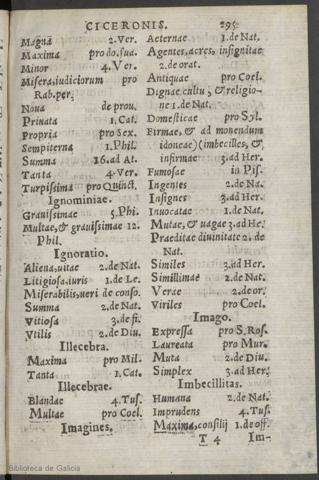 CICERONIS. 295
Magna 2. Ver.
Maxima pro do. sua.
Minor 4. Ver.
Misera, iudiciorum pro
Rab. per.
Noua de prou.
Priuata 1. Cat.
Propria pro Sex.
Sempiterna 1. Phil.
Summa 16. ad At.
Tanta 4. Ver.
Turpissima pro Quinct.
Ignominiae.
Grauissimae 5. Phi.
Multae, & grauissimae 12.
Phil.
Ignoratio.
Aliena, uitae 2. de Nat.
Litigiosa. iuris 1. de Le.
Miserabilis, ueri de conso.
Summa 2. de Nat.
Vitiosa 3. de fi.
Vtilis 2. de Diu.
Illecebra.
Maxima pro Mil.
Tanta 1. Cat.
Illecebrae.
Blandae 4. Tus.
Multae pro Coel.
Imagines.
Aeternae 1. de Nat.
Agentes, acres, insignitae
2. de orat.
Antiquae pro Coel.
Dignae cultu, & religio-
ne 1. de Nat.
Domesticae pro Syl.
Firmae, & ad monendum
idoneae) (imbecilles, &
infirmae 3. ad Her.
Fumosae in Pis.
Ingentes 2. de Na.
Insignes 3. ad Her.
Inuocatae 1. de Nat.
Mutae, & uagae 3. ad He.
Praeditae diuinitate 2. de
Nat.
Similes 3. ad Her.
Simillimae 2. de Nat.
Verae 2. de or.
Viriles pro Coel.
Imago.
Expressa pro S. Ros.
Laureata pro Mur.
Muta 2. de Diu.
Simplex 3. ad Her.
Imbecillitas.
Humana 2. de Nat.
Imprudens 4. Tus.
Maxima, consilij 1. de off.
T 4 Im-
Biblioteca de Galicia